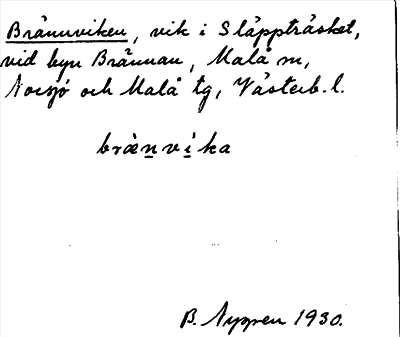 Brännviken, vik i Släppträsket,
vid byn Brännan, Malå sn,
Norsjö och Malå tg, Västerb. l.
bræ̀n̲vi̲̇ka
B. Nyppen 1930.